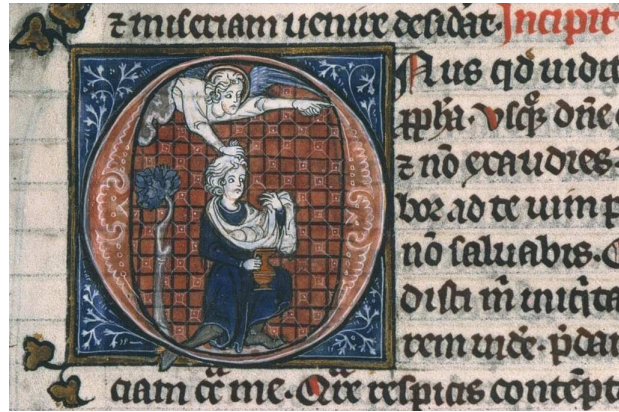 ⁊ miseriam uenire desidāt. Incipit
Onus qd̄ uidit
ꝓpħa. Vsq̄ꝫ dn̄e
⁊ nō exaudies
bor ad te uim p
nō saluabis. Q
disti m̄ iniq̄ta
rem uidē. p̄dam
ciam cc̄ me. Qr̄e respicis contēpt